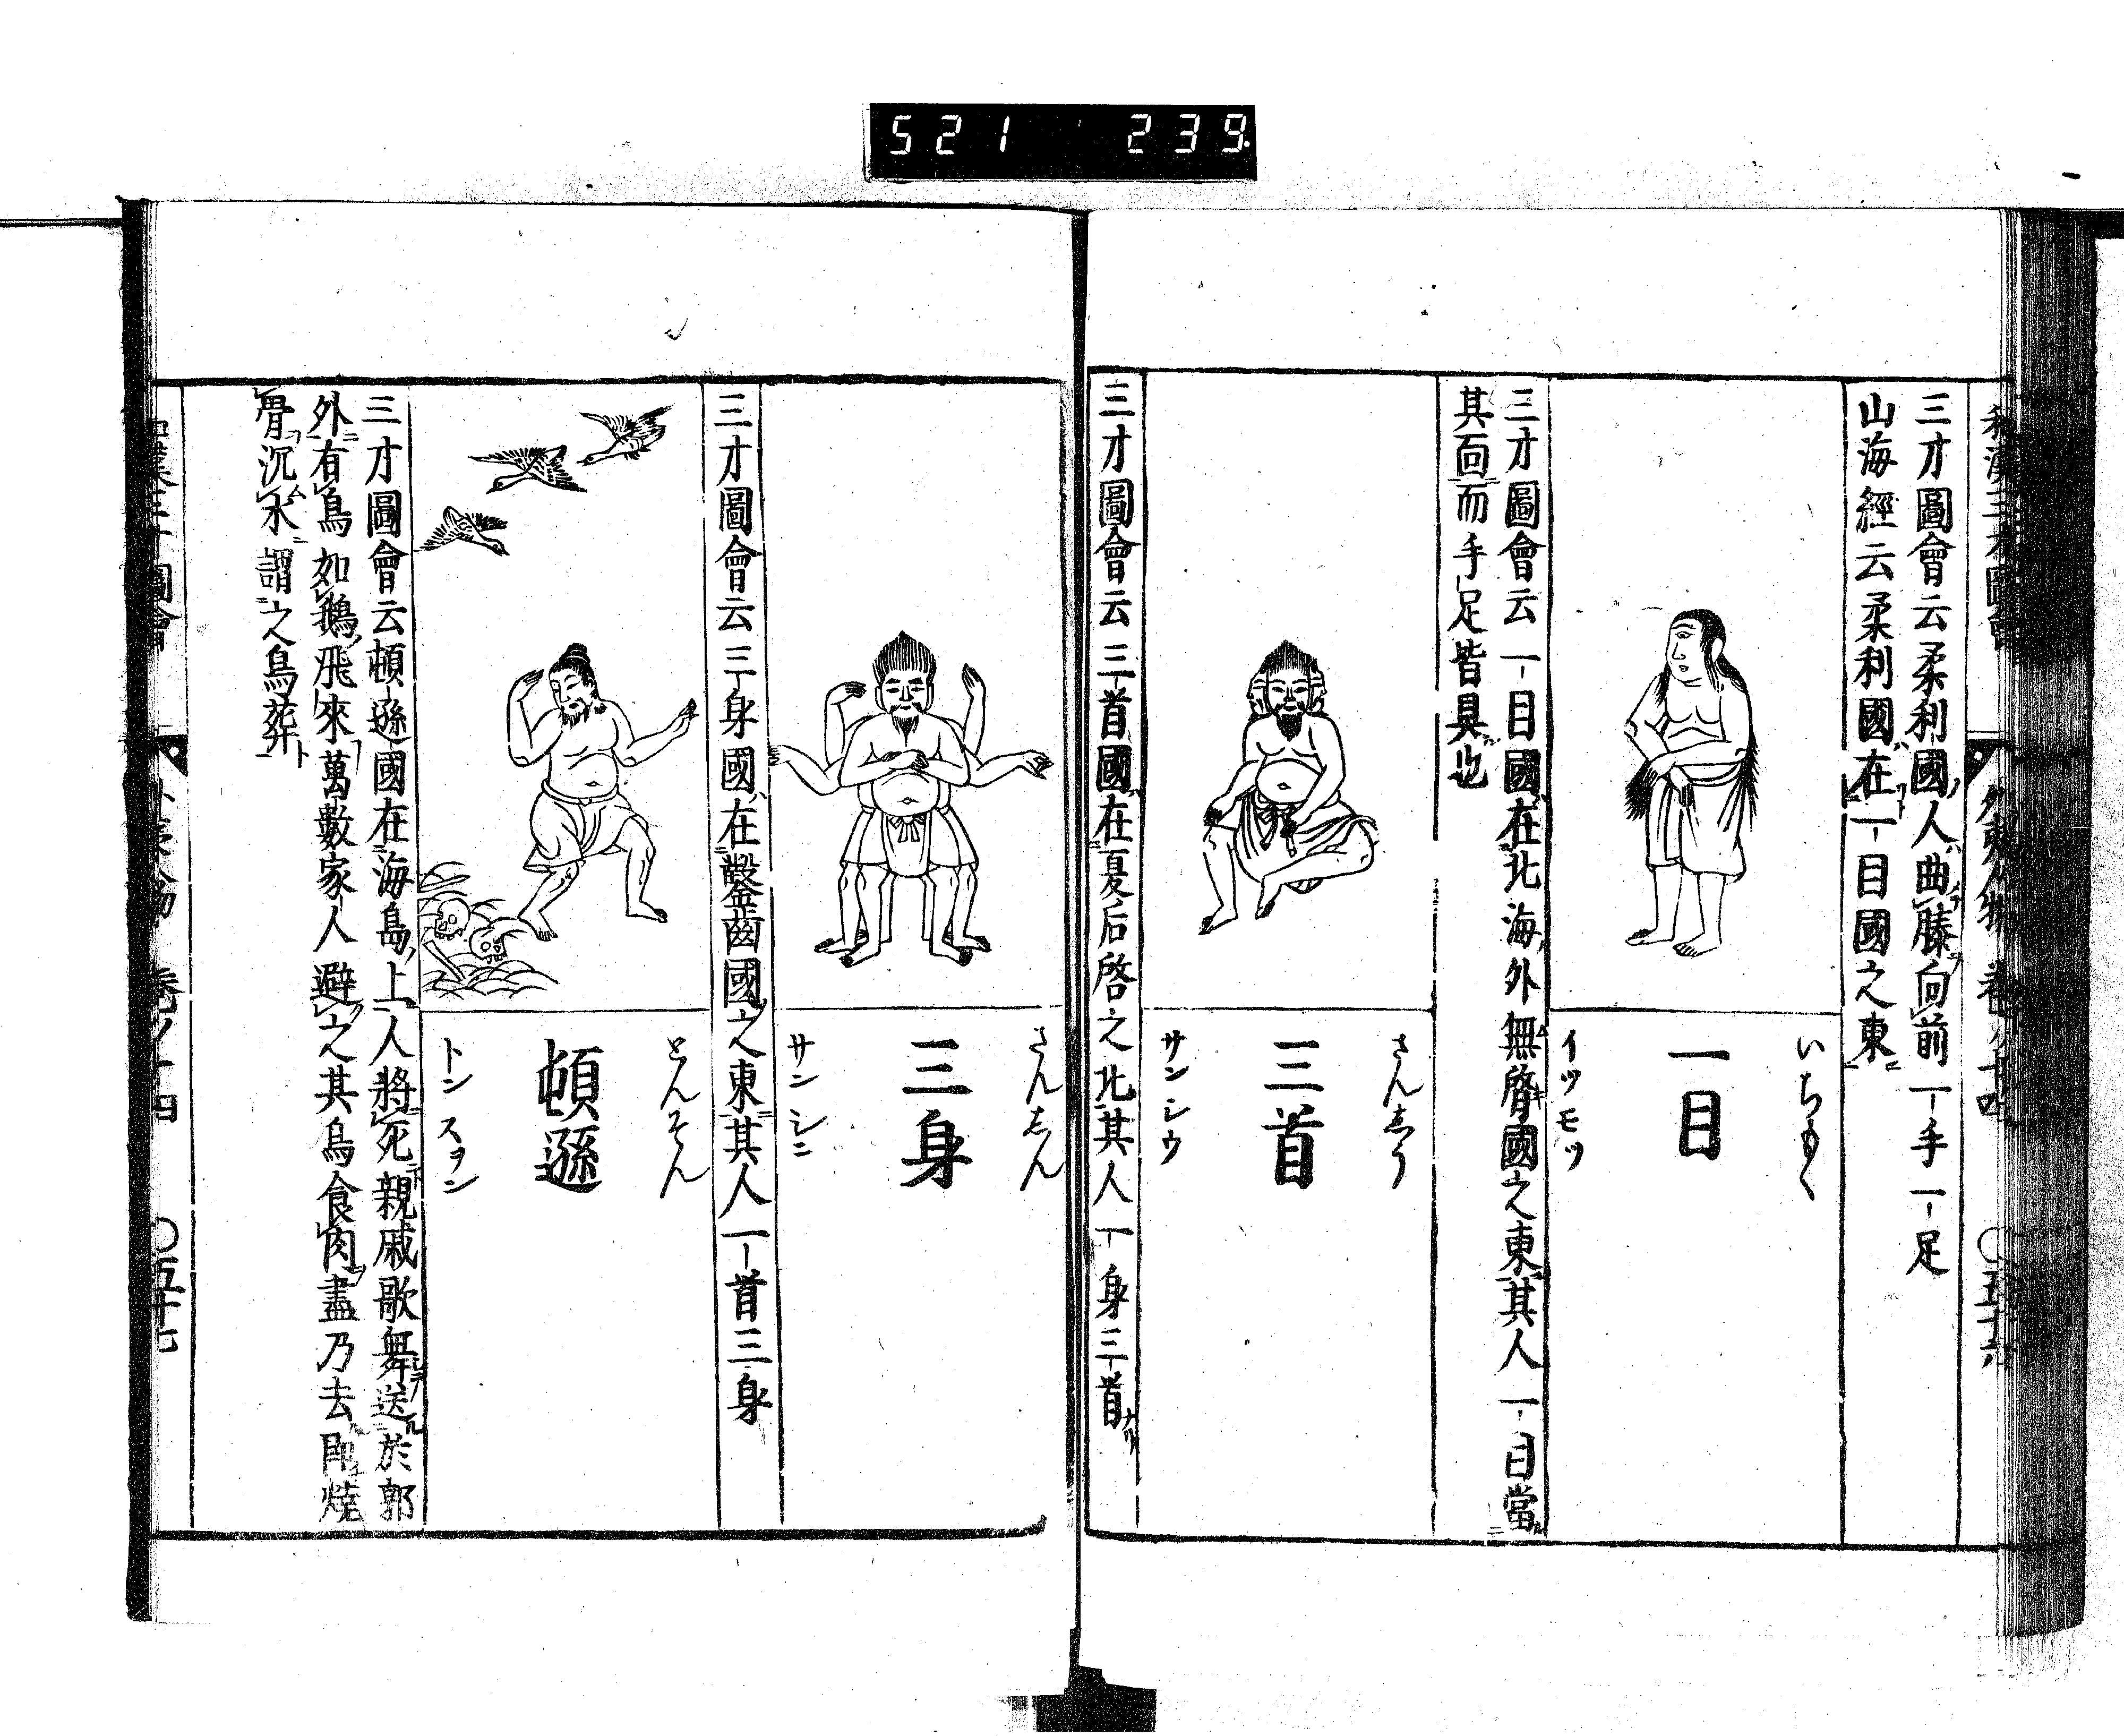 521 239.
和漢三才圖會 外夷人物 卷ノ十四 〇五十六
三才圖會云柔利國ノ人ハ曲膝向前一手一足
山海經云柔利國ハ在一目國之東
いちもく
一目
イツモツ
三才圖會云一目國ハ在北海ノ外無䏿國之東其人一目當
其面而手足皆具也
さんしう
三首
サンシウ
三才圖會云三首國ハ在夏后啓之北其人一身三首ナリ
さんしん
三身
サンシニ
三才圖會云三身國ハ在鑿齒國之東其人一首三身
とんそん
頓遜
トンスヲン
三才圖會云頓遜國在海島ノ上人將死親戚歌舞送於郭
外有鳥如鵝飛來萬數家人避之其鳥食肉盡乃去即燒
骨沉水謂之鳥葬ト
和漢三才圖會 外夷人物 卷ノ十四 〇五十七